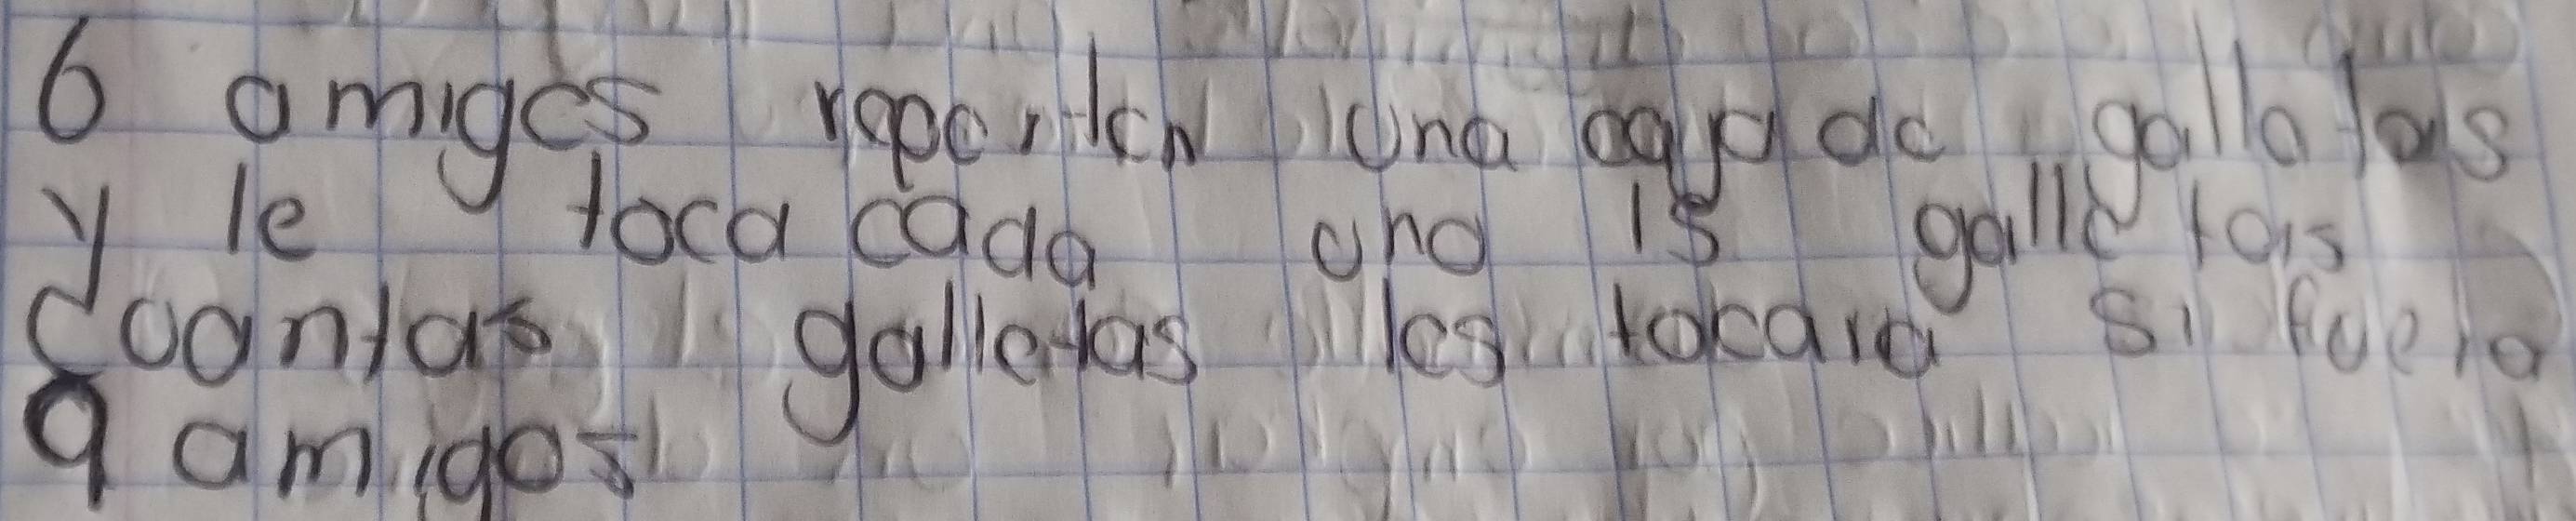 6 amigos reparten una caja de galletas
y le toca cada uno 15 galletas
cuantas galletas les tocara si fuera
9 amigos